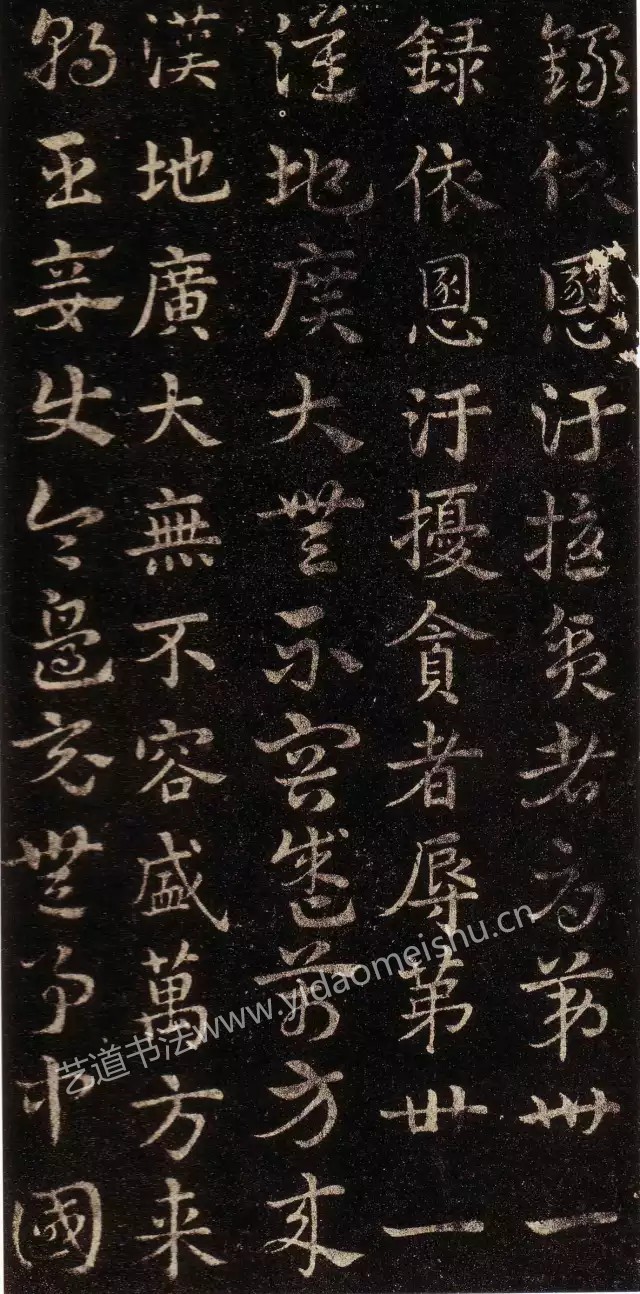 録依恩汙擾貪者辱第卅一
録依恩汙擾貪者辱第卅一
漢地廣大無不容盛萬方来
漢地廣大無不容盛萬方来
朝臣妾使令邊竟無事中國
艺道书法www.yidaomeishu.cn